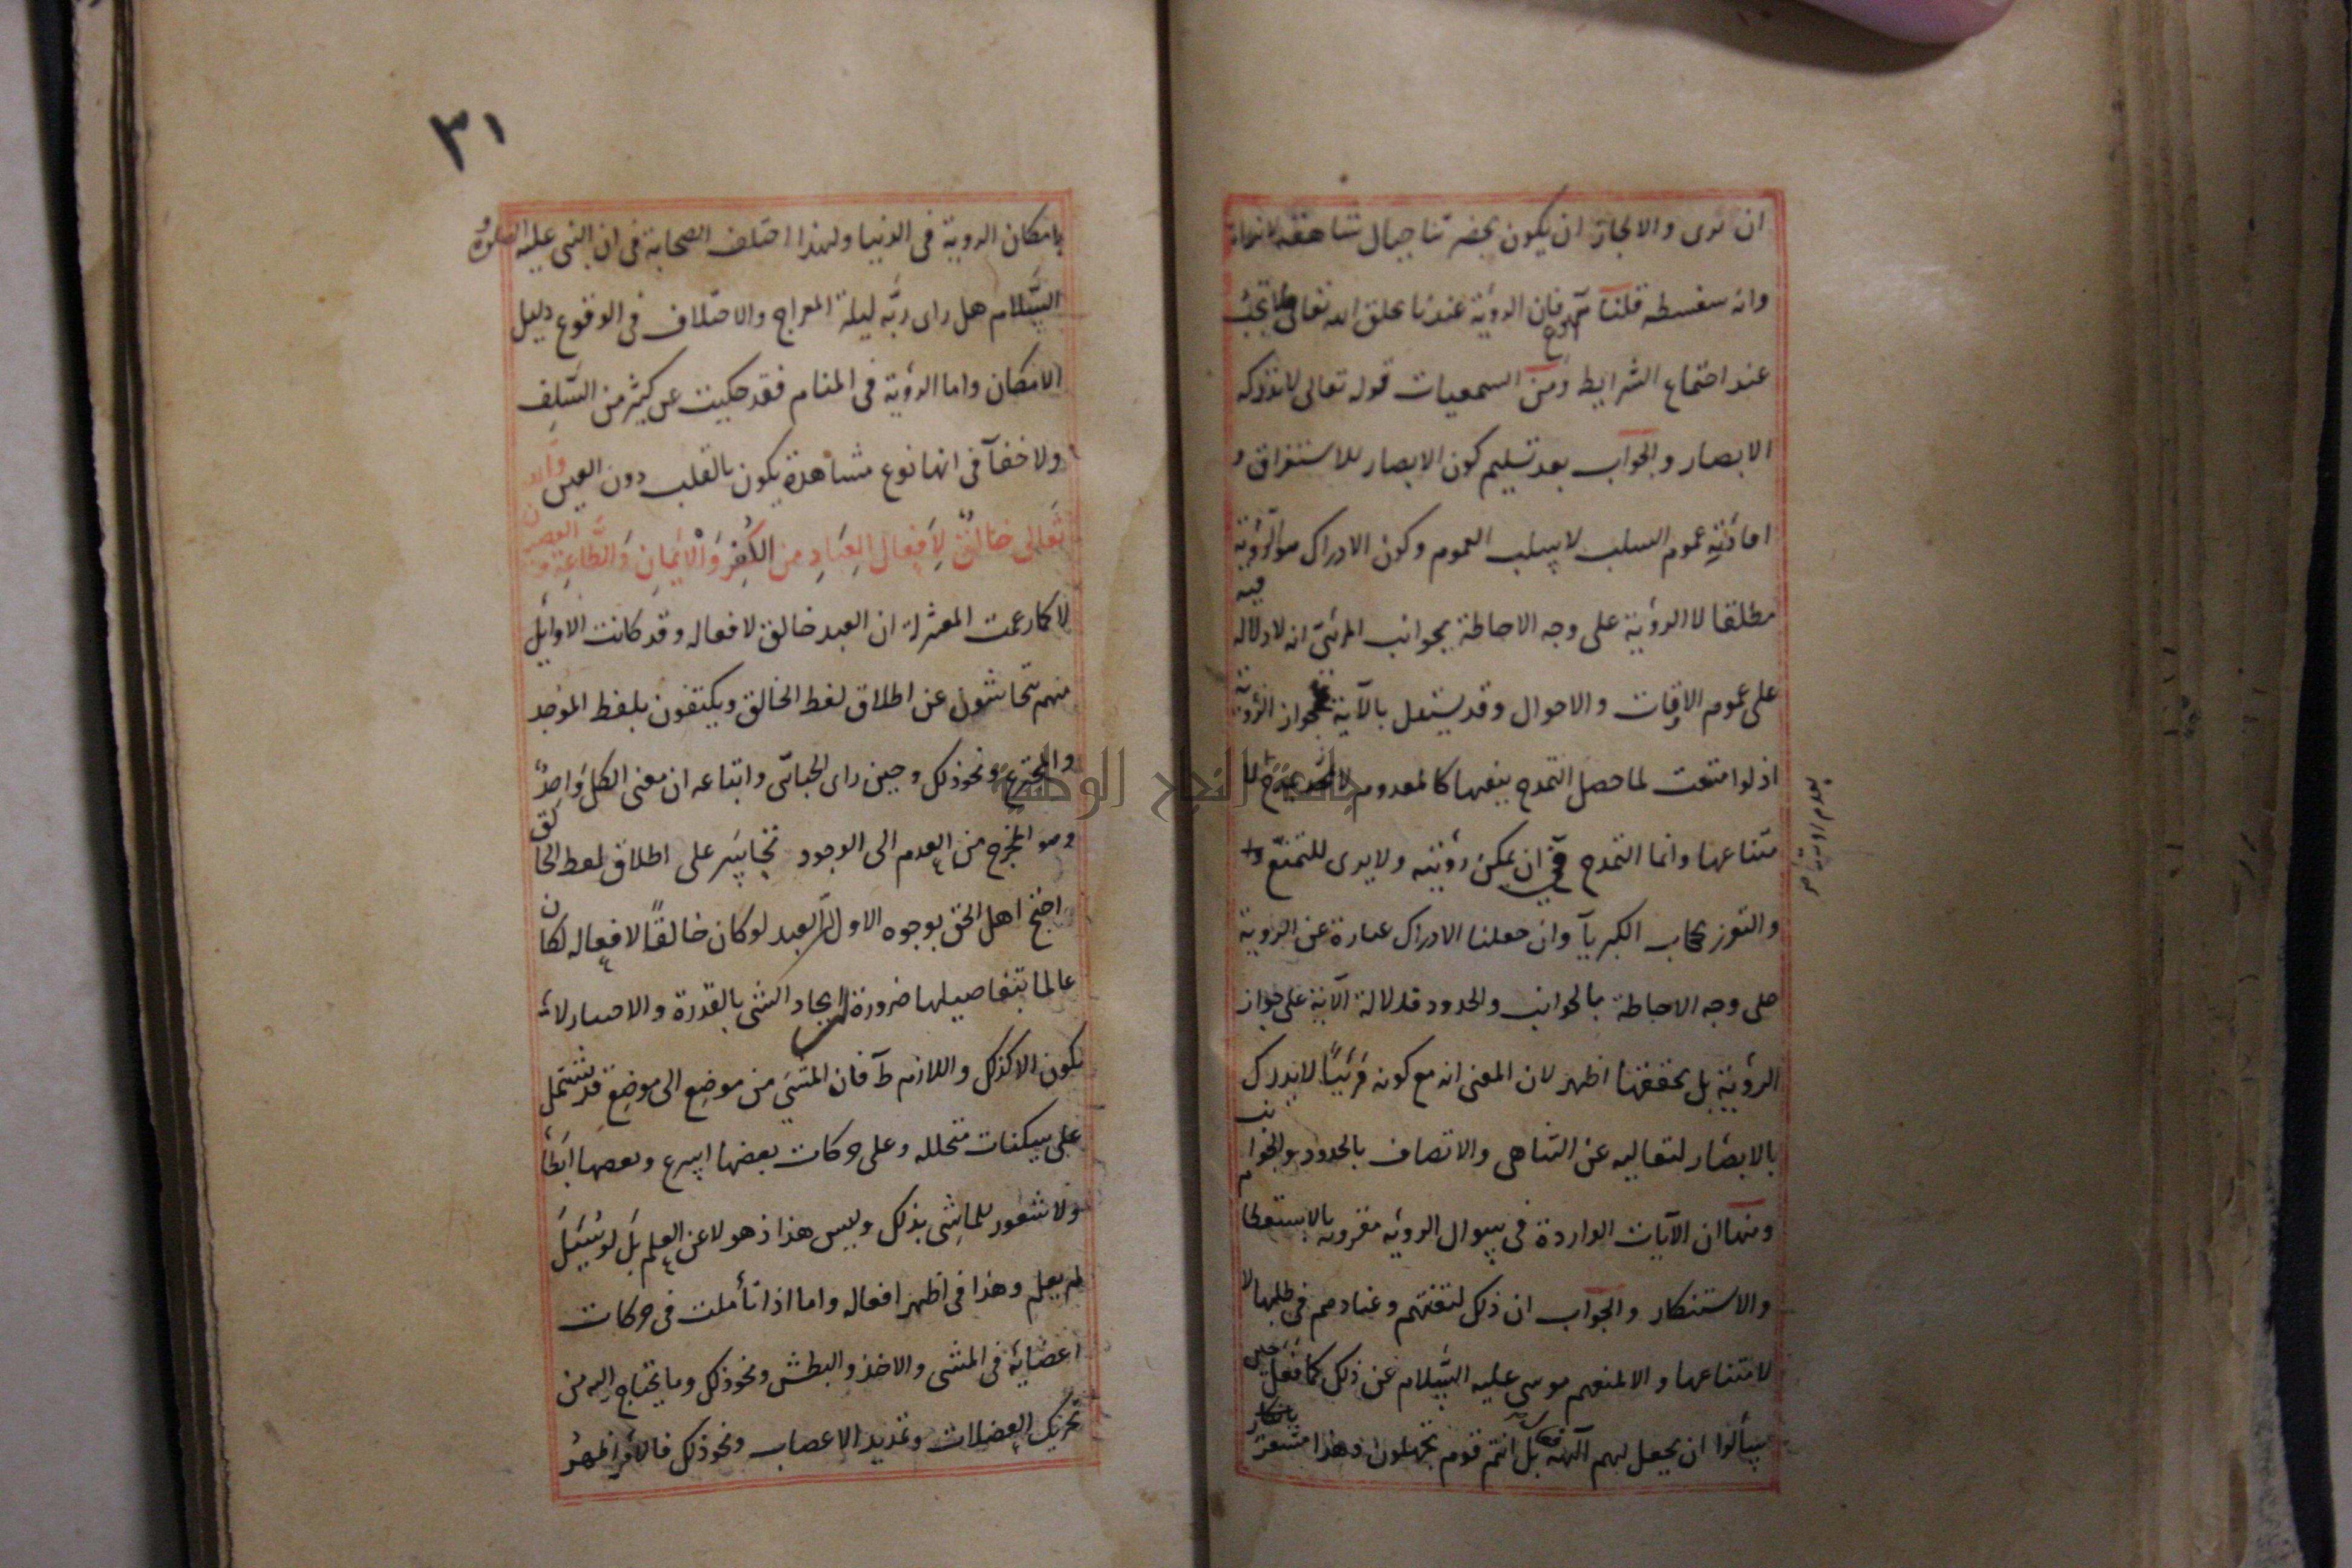 ان يرى والا لجاز ان يكون بحضرتنا جبال شاهقة لا نراها
وانه سفسطه قلنا مم فان الرؤية عندنا بخلق الله تعالى فلا تجب
عند اجتماع الشرايط ومن السمعيات قوله تعالى لا تدركه
الابصار والجواب بعد تسليم كون الابصار للاستغراق و
افادته عموم السلب لا سلب العموم وكون الادراك هو الرؤية
مطلقا لا الرؤية على وجه الاحاطة بجوانب المرئي انه لا دلالة فيه
على عموم الاوقات والاحوال وقد يستدل بالآية على جواز الرؤية
اذ لو امتنعت لما حصل التمدح بنفيها كالمعدوم لا يمدح
بعدم رؤيته
متناعها وانما التمدح في ان يمكن رؤيته ولا يرى للتمنع
والتعزز بحجاب الكبريآ وان جعلنا الادراك عبارة عن الروية
على وجه الاحاطة بالجوانب والحدود فدلالة الآية على جواز
الرؤية بل تحققها اظهر لان المعنى انه مع كونه مرئيا لا يدرك
بالابصار لتعاليه عن التناهي والاتصاف بالحدود والجوانب
ومنها ان الآيات الواردة في سوال الرويه مقرونه بالاستعظام
والاستنكار والجواب ان ذلك لتعنتهم وعنادهم في طلبها لا
لامتناعها والا لمنعهم موسى عليه السلام عن ذلك كما فعل حين
سألوا ان يجعل لهم آلهة فقال بل انتم قوم تجهلون وهذا مشعر
٣١
بامكان الروية في الدنيا ولهذا اختلف الصحابة في ان النبي عليه الصلوة و
السلام هل راى ربه ليلة المعراج والاختلاف في الوقوع دليل
الامكان واما الرؤية في المنام فقد حكيت عن كثير من السلف
ولا خفآ في انها نوع مشاهدة يكون بالقلب دون العين والله
تعالى خالق لافعال العباد من الكفر والايمان والطاعة والعصيان
لا كما زعمت المعتزلة ان العبد خالق لافعاله وقد كانت الاوايل
منهم يتحاشون عن اطلاق لفظ الخالق ويكتفون بلفظ الموجد
والمخترع ونحو ذلك وحين راى الجبائي واتباعه ان معنى الكل واحد
وهو المخرج من العدم الى الوجود تجاسر على اطلاق لفظ الخالق
احتج اهل الحق بوجوه الاول ان العبد لو كان خالقا لافعاله لكان
عالما بتفاصيلها ضرورة ان ايجاد الشى بالقدرة والاختيار لا
يكون الا كذلك واللازم ط فان المشي من موضع الى موضع قد يشتمل
على سكنات متخلله وعلى حركات بعضها اسرع وبعضها ابطأ
ولا شعور للماشى بذلك وليس هذا ذهولا عن العلم بل لو سئل
لم يعلم وهذا في اظهر افعاله واما اذا تأملت في حركات
اعضائه في المشى والاخذ والبطش ونحو ذلك وما يحتاج اليه من
تحريك العضلات وتمديد الاعصاب ونحو ذلك فالامر اظهر
جامعة النجاح الوطنية